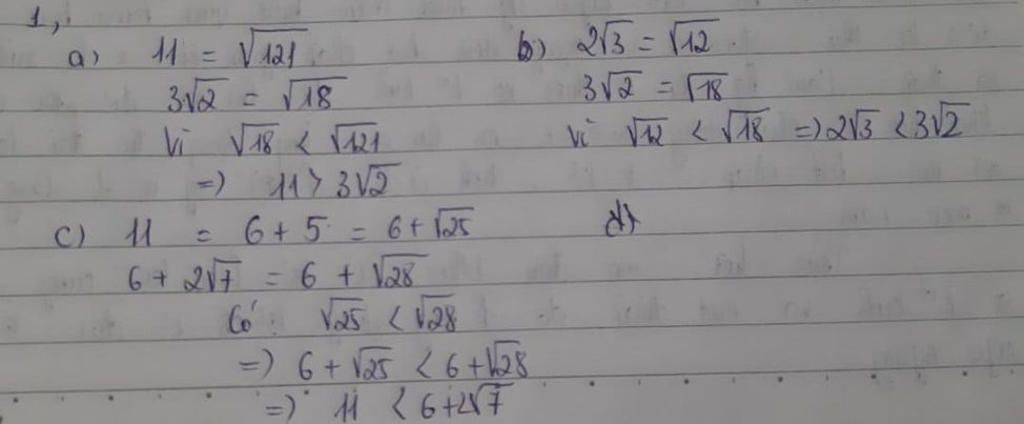 1,
a) 11 = √121
3√2 = √18
Vì √18 < √121
=> 11 > 3√2
b) 2√3 = √12
3√2 = √18
Vì √12 < √18 => 2√3 < 3√2
c) 11 = 6 + 5 = 6 + √25
6 + 2√7 = 6 + √28
Có: √25 < √28
=> 6 + √25 < 6 + √28
=> 11 < 6 + 2√7
d)